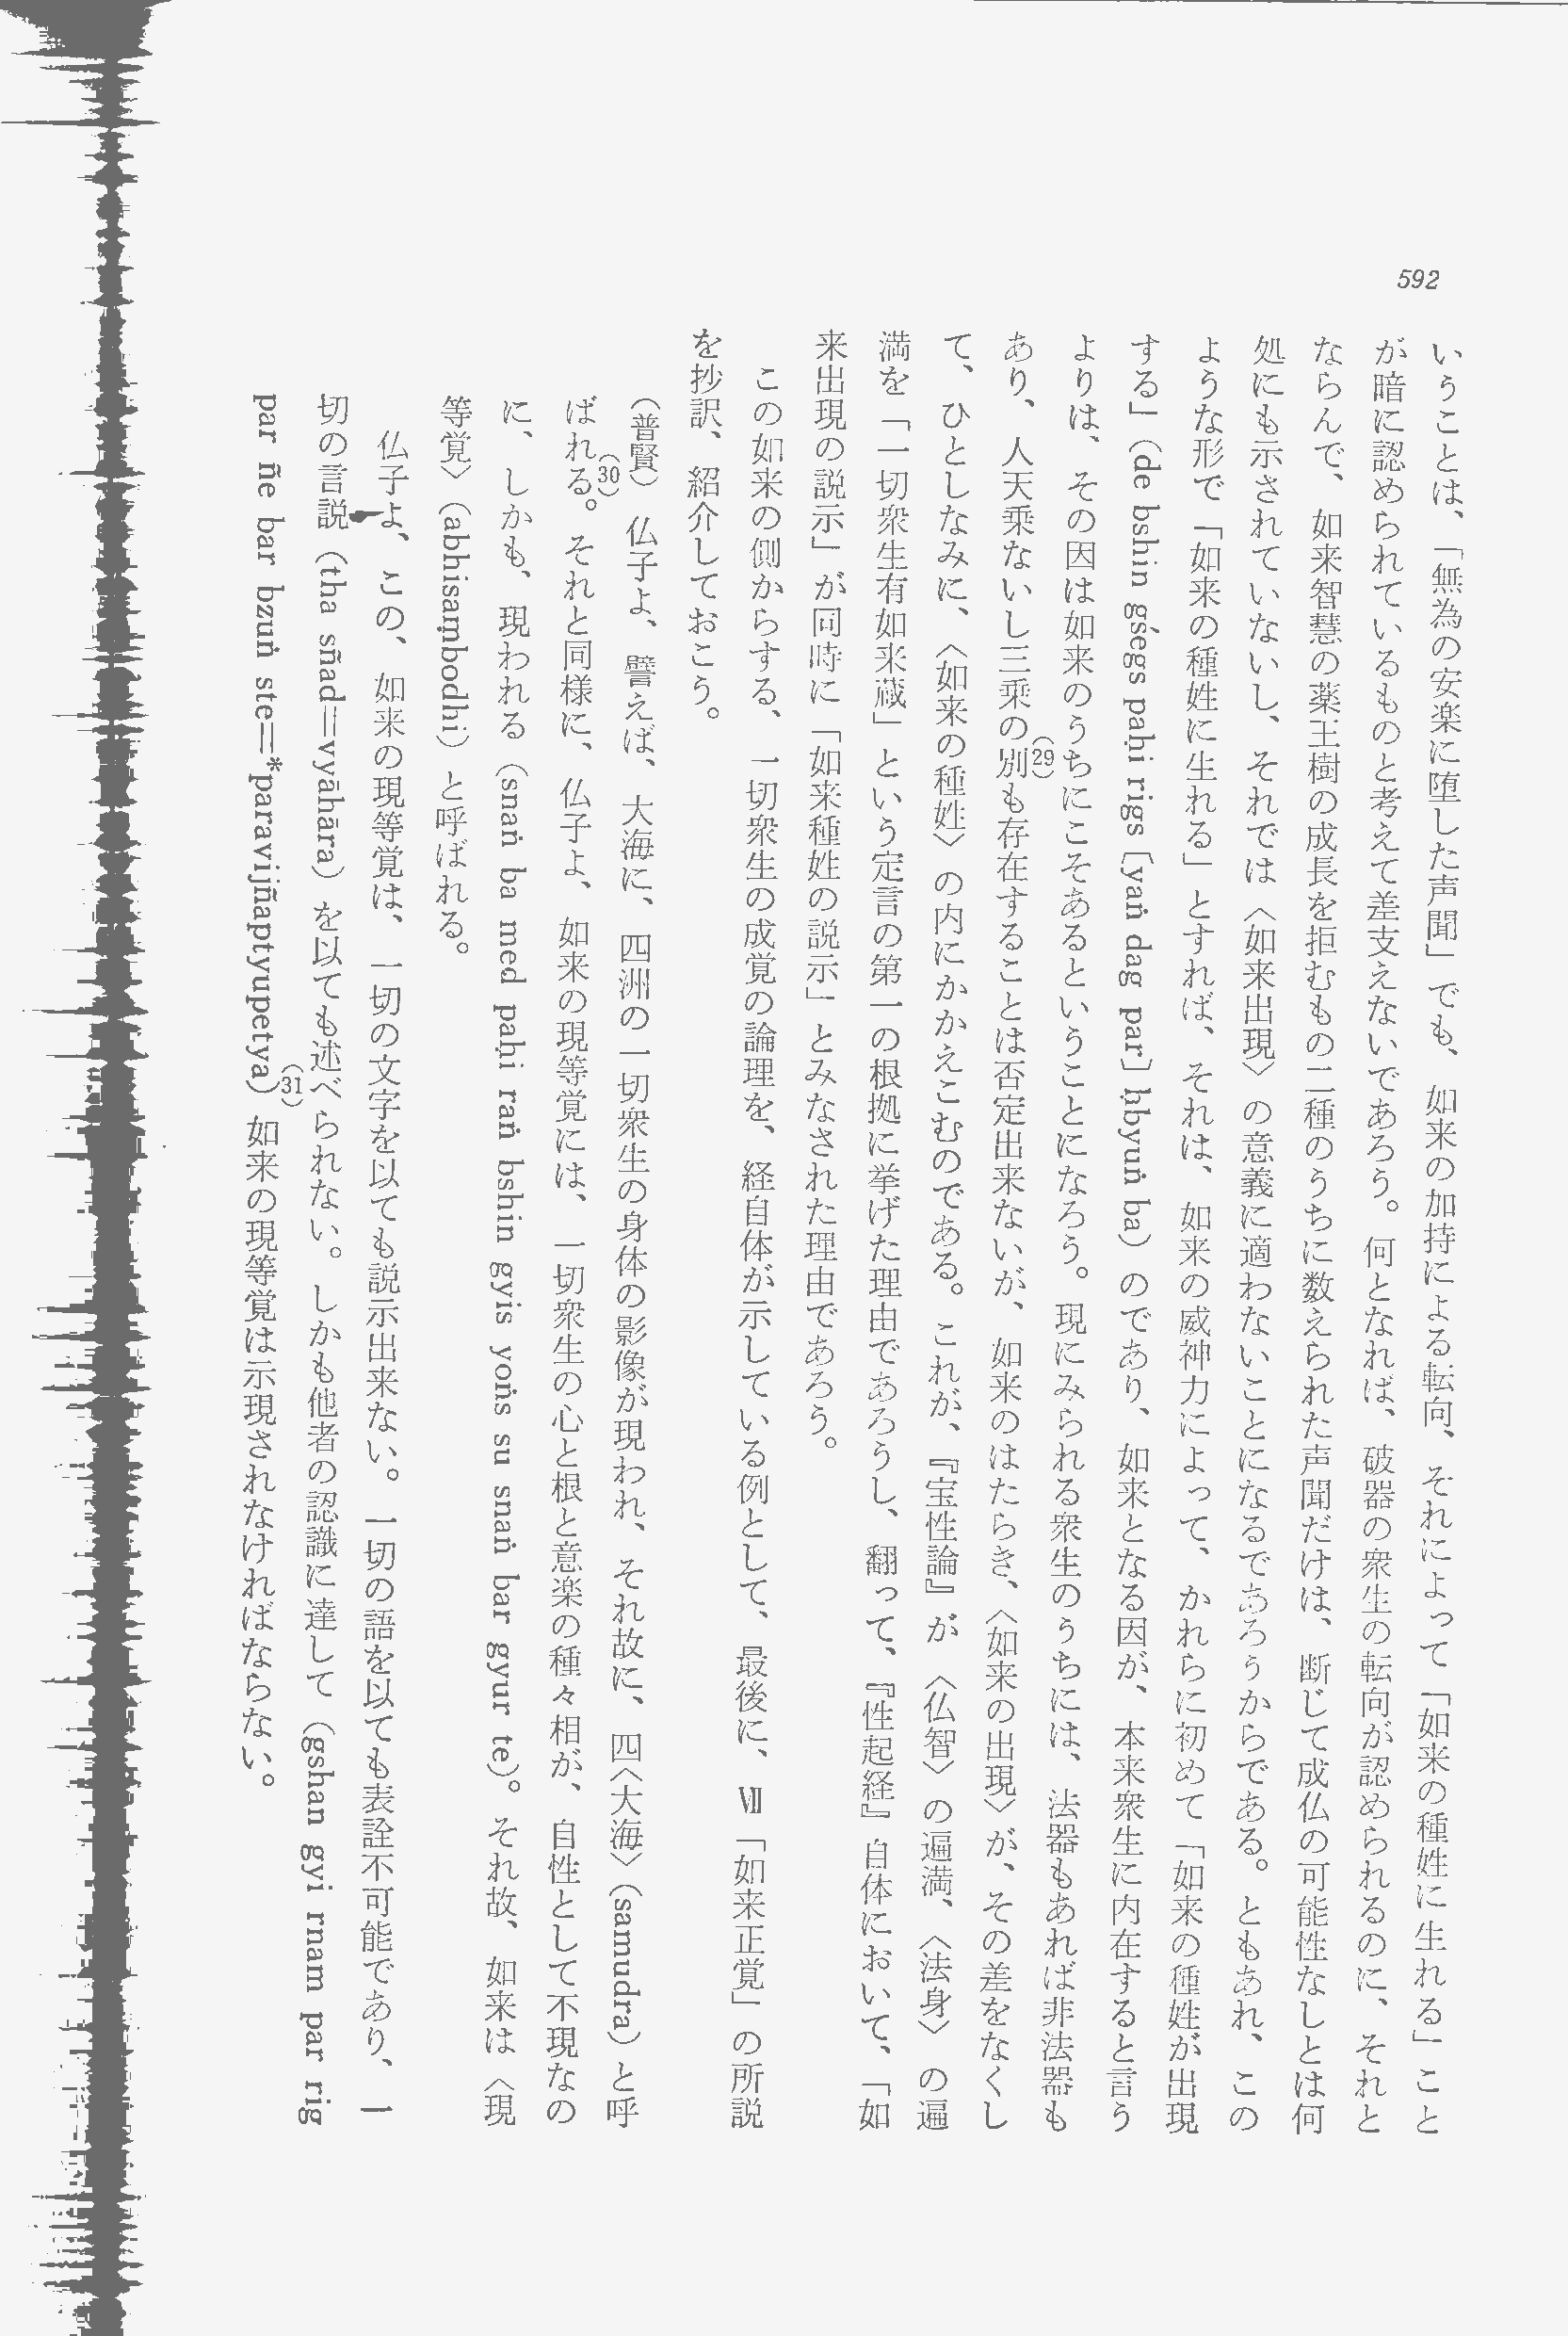 592
いうことは、「無為の安楽に堕した声聞」でも、如来の加持による転向、それによって「如来の種姓に生れる」こと
が暗に認められているものと考えて差支えないであろう。何となれば、破器の衆生の転向が認められるのに、それと
ならんで、如来智慧の薬王樹の成長を拒むもの二種のうちに数えられた声聞だけは、断じて成仏の可能性なしとは何
処にも示されていないし、それでは〈如来出現〉の意義に適わないことになるであろうからである。ともあれ、この
ような形で「如来の種姓に生れる」とすれば、それは、如来の威神力によって、かれらに初めて「如来の種姓が出現
する」(de bshin gśegs paḥi rigs〔yaṅ dag par〕ḥbyuṅ ba)のであり、如来となる因が、本来衆生に内在すると言う
よりは、その因は如来のうちにこそあるということになろう。現にみられる衆生のうちには、法器もあれば非法器も
あり、人天乗ないし三乗の別(29)も存在することは否定出来ないが、如来のはたらき、〈如来の出現〉が、その差をなくし
て、ひとしなみに、〈如来の種姓〉の内にかかえこむのである。これが、『宝性論』が〈仏智〉の遍満、〈法身〉の遍
満を「一切衆生有如来蔵」という定言の第一の根拠に挙げた理由であろうし、翻って、『性起経』自体において、「如
来出現の説示」が同時に「如来種姓の説示」とみなされた理由であろう。
この如来の側からする、一切衆生の成覚の論理を、経自体が示している例として、最後に、Ⅶ「如来正覚」の所説
を抄訳、紹介しておこう。
(普賢)仏子よ、譬えば、大海に、四洲の一切衆生の身体の影像が現われ、それ故に、四〈大海〉(samudra)と呼
ばれる(30)。それと同様に、仏子よ、如来の現等覚には、一切衆生の心と根と意楽の種々相が、自性として不現なの
に、しかも、現われる(snaṅ ba med paḥi raṅ bshin gyis yoṅs su snaṅ bar gyur te)。それ故、如来は〈現
等覚〉(abhisaṃbodhi)と呼ばれる。
仏子よ、この、如来の現等覚は、一切の文字を以ても説示出来ない。一切の語を以ても表詮不可能であり、一
切の言説(tha sñad=vyāhāra)を以ても述べられない。しかも他者の認識に達して(gshan gyi rnam par rig
par ñe bar bzuṅ ste=*paravijñaptyupetya)(31)如来の現等覚は示現されなければならない。